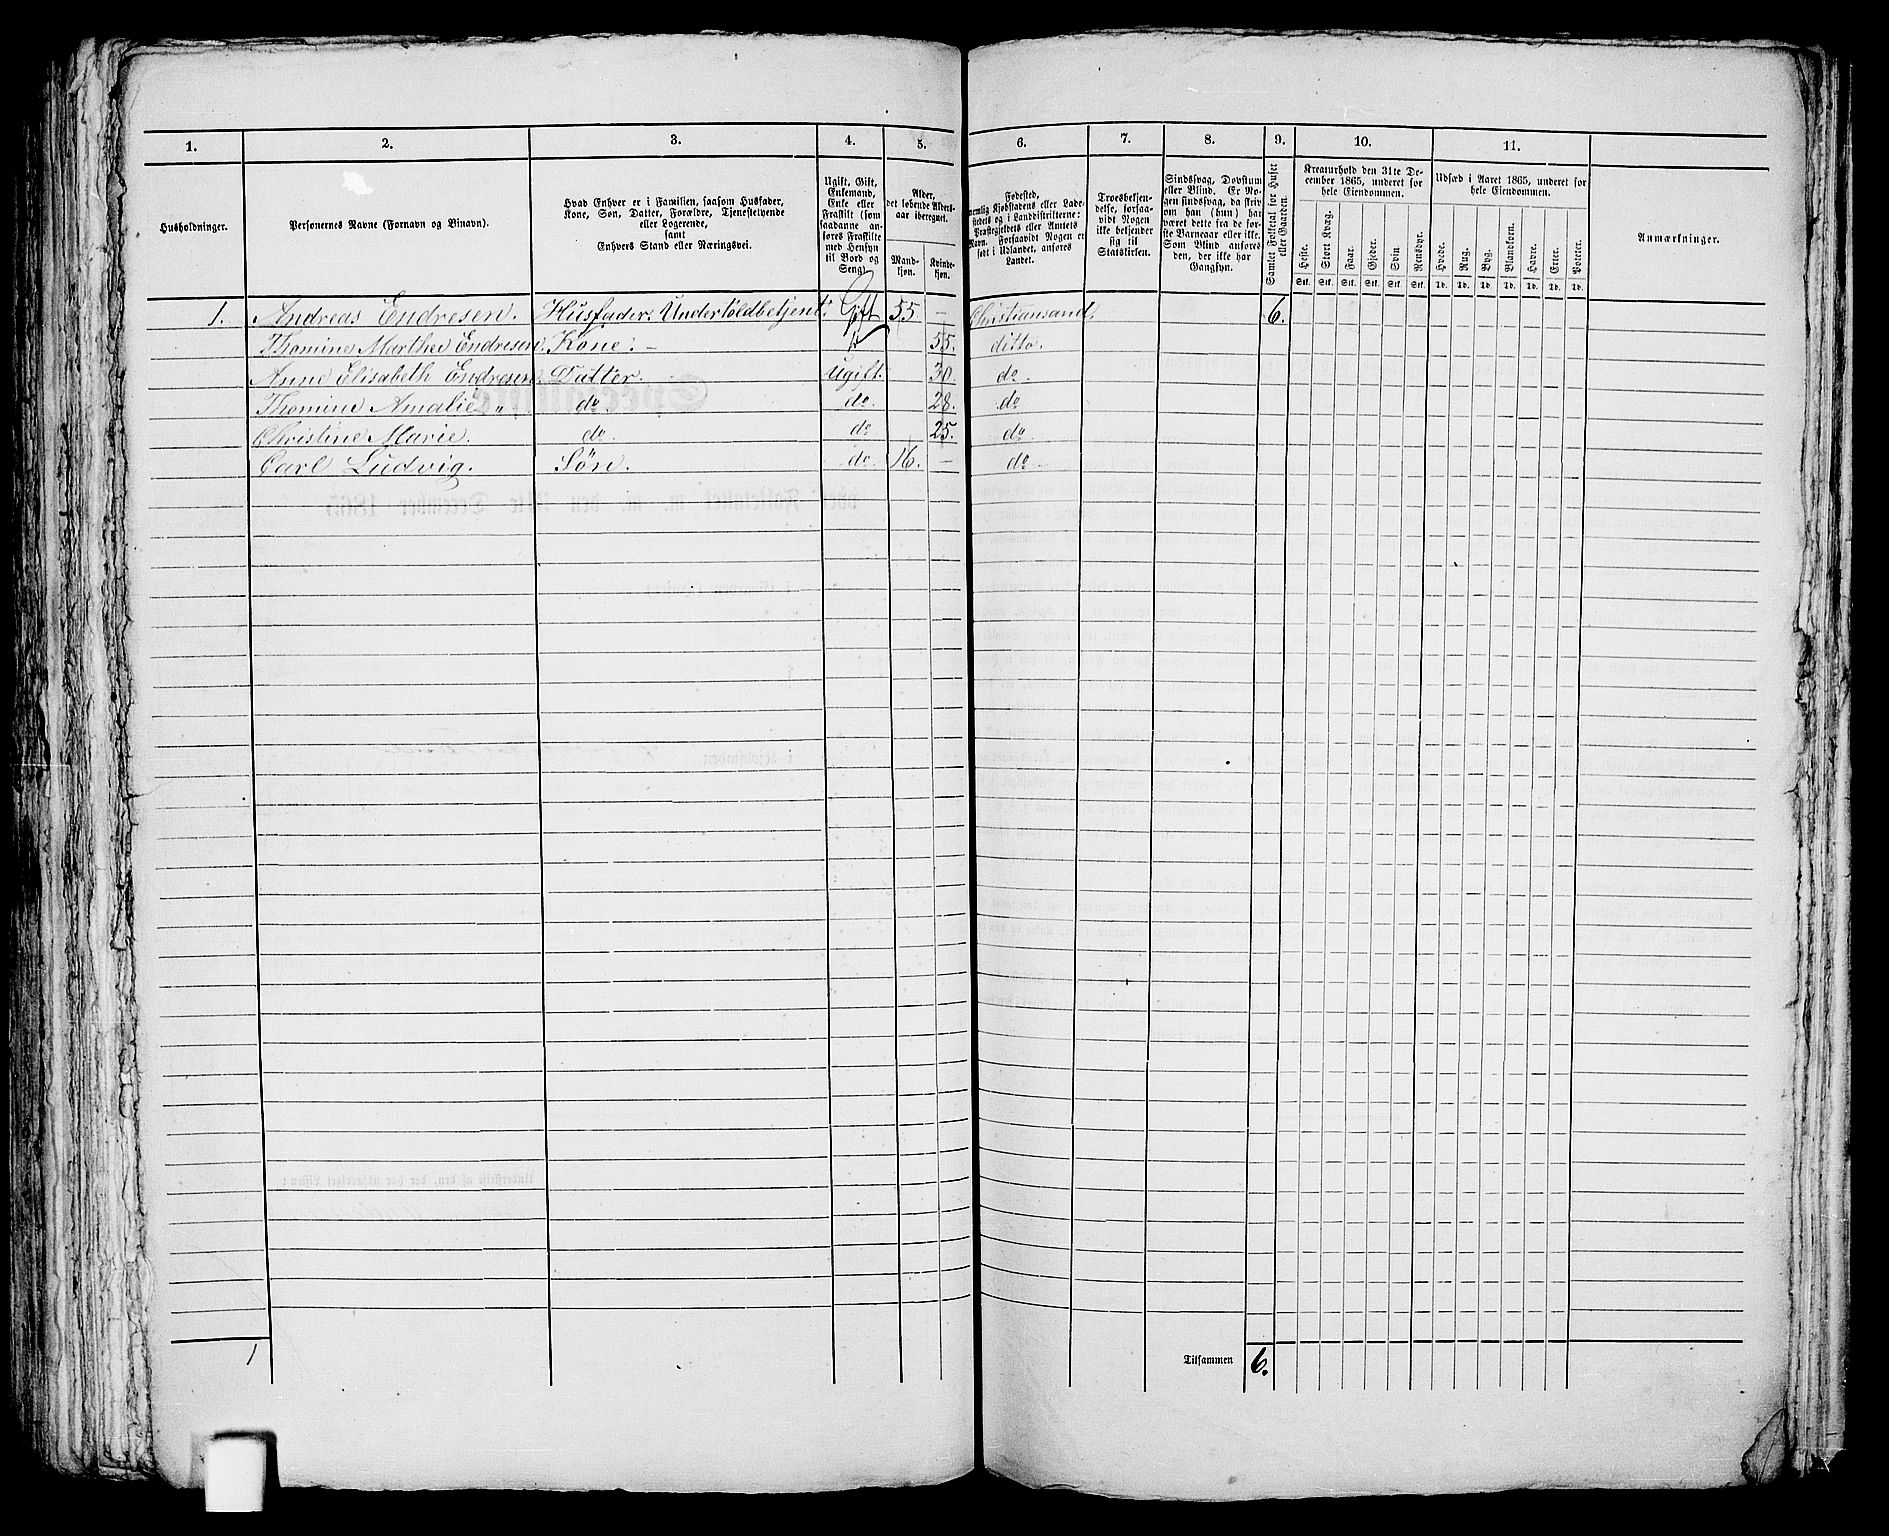 1. 2. 3. 4. 5. 6. 7. 8. 9. 10. 11.
Husholdninger.
Personernes Navne (Fornavn og Binavn).
Hvad Enhver er i Familien, saasom Husfader,
Kone, Søn, Datter, Forældre, Tjenestetyende
eller Logerende,
samt
Enhvers Stand eller Næringsvei.
Ugift, Gift,
Enkemand,
Enke eller
Fraskilt (som
saadanne an-
føres Fraskilte
med Hensyn
til Bord og
Seng).
Alder,
det løbende Alders-
aar iberegnet.
Mand-
kjøn.
Kvinde-
kjøn.
Fødested,
nemlig Kjøbstadens eller Lade-
stedets og i Landdistrikterne:
Præstegjeldets eller Annets
Navn. Forsaavidt Nogen er
født i Udlandet, anføres
Landet.
Troesbekjen-
delse, forsaa-
vidt Nogen
ikke bekjender
sig til
Statskirken.
Sindssvag, Døvstum
eller Blind. Er No-
gen sindssvag, da skriv
om han (hun) har
været dette fra de før-
ste Barneaar eller ikke.
Som Blind anføres
den, der ikke har
Gangsyn.
Samlet Folketal for Huset
eller Gaarden.
Kreaturhold den 31te De-
cember 1865, underet for
hele Eiendommen.
Heste. Stort Kvæg. Faar. Gjeder. Svin Rensdyr.
Stk. Stk. Stk. Stk. Stk. Stk.
Udsæd i Aaret 1865, underet for
hele Eiendommen.
Hvede. Rug. Byg. Blandkorn. Havre. Erter. Poteter.
Td. Td. Td. Td. Td. Td. Td.
Anmærkninger.
1. Andreas Endresen. Husfader. Undertoldbetjent. Gift 55 – Christiansand. 6.
Thomine Marthea Endresen. Kone. – 55. ditto.
Anne Elisabeth Endresen. Datter. Ugift. 30. do.
Thomine Amalie „ do do. 28. do
Christine Marie. do. do 25. do.
Carl Ludvig. Søn. do. 16. – do.
1 Tilsammen 6.